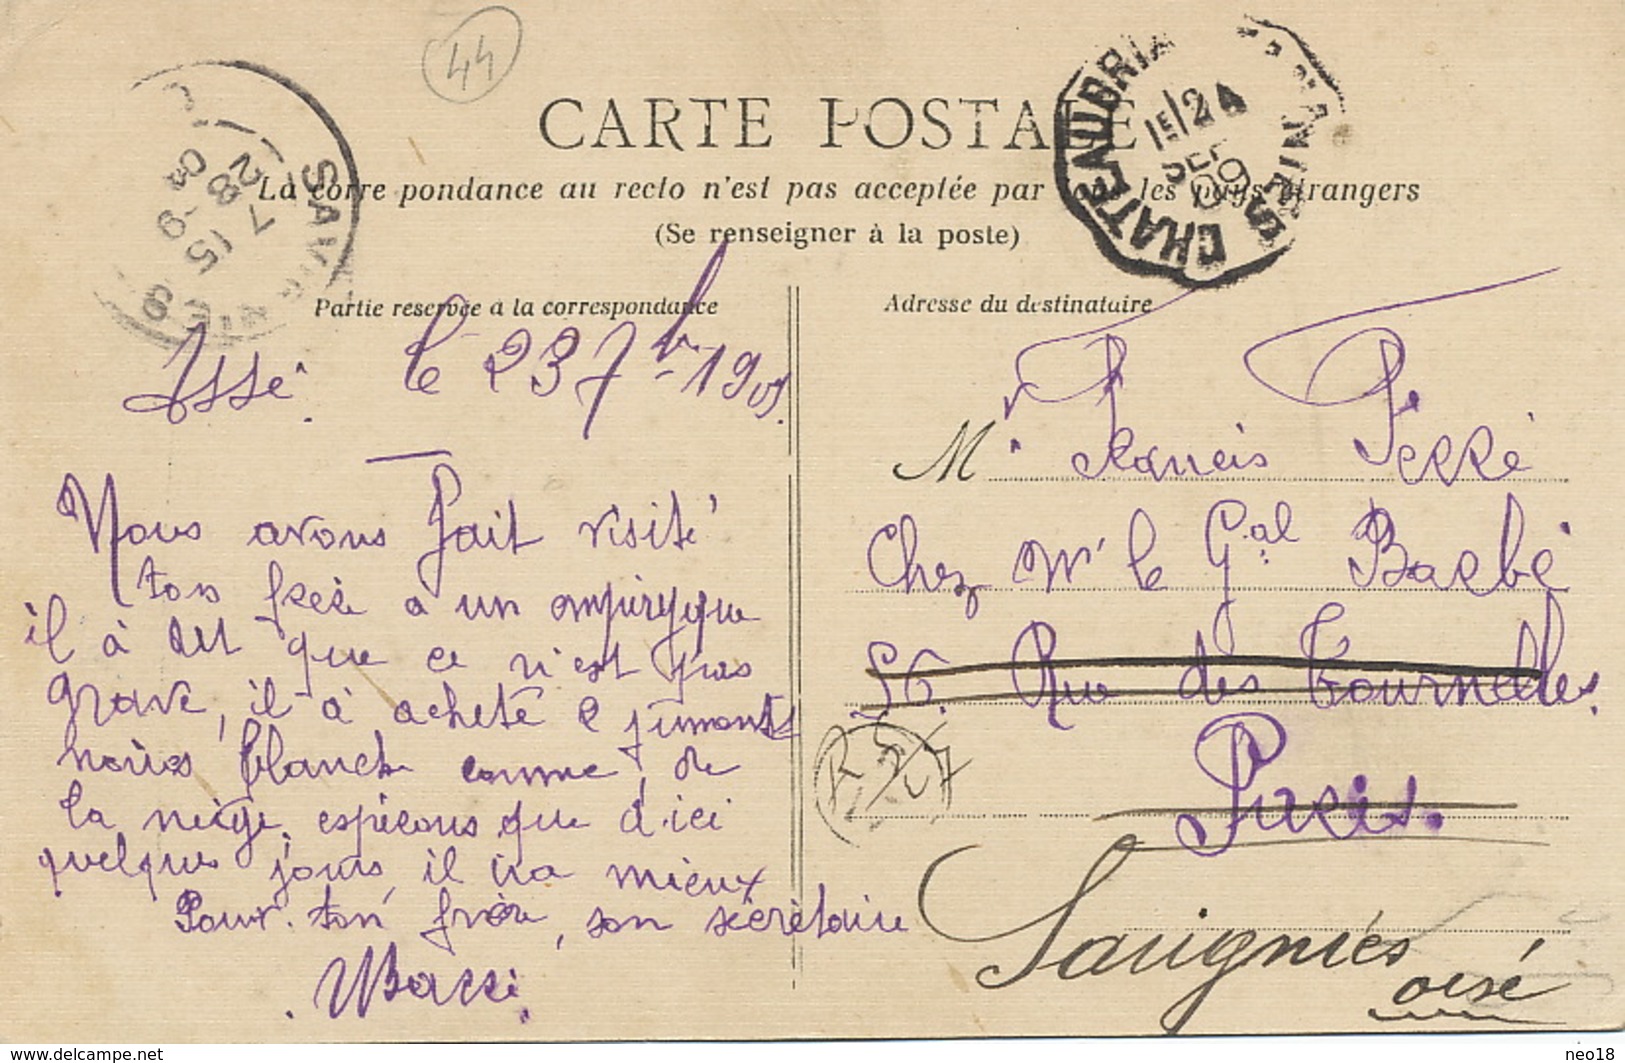 44
CARTE POSTALE
La correspondance au recto n'est pas acceptée par tous les pays étrangers
(Se renseigner à la poste)
CHATEAUBRIA
1E/24
SEP
09
7 15
28 -9
09
Partie reservée à la correspondance
Adresse du destinataire
Issé. le 23 7bre 1909.
Nous avons fait visité
ton frère a un ampiryque
il à dit que ce n'est pas
grave, il à acheté 2 juments
noires blanche comme de
la neige. espérons que d'ici
quelques jours, il ira mieux
Pour ton frère, son secrétaire
Mr. Francis Perré
Chez Mr le Gal Barbé
56. Rue des Tournelles.
Paris.
Savignies
oise
delcampe.net
neo18